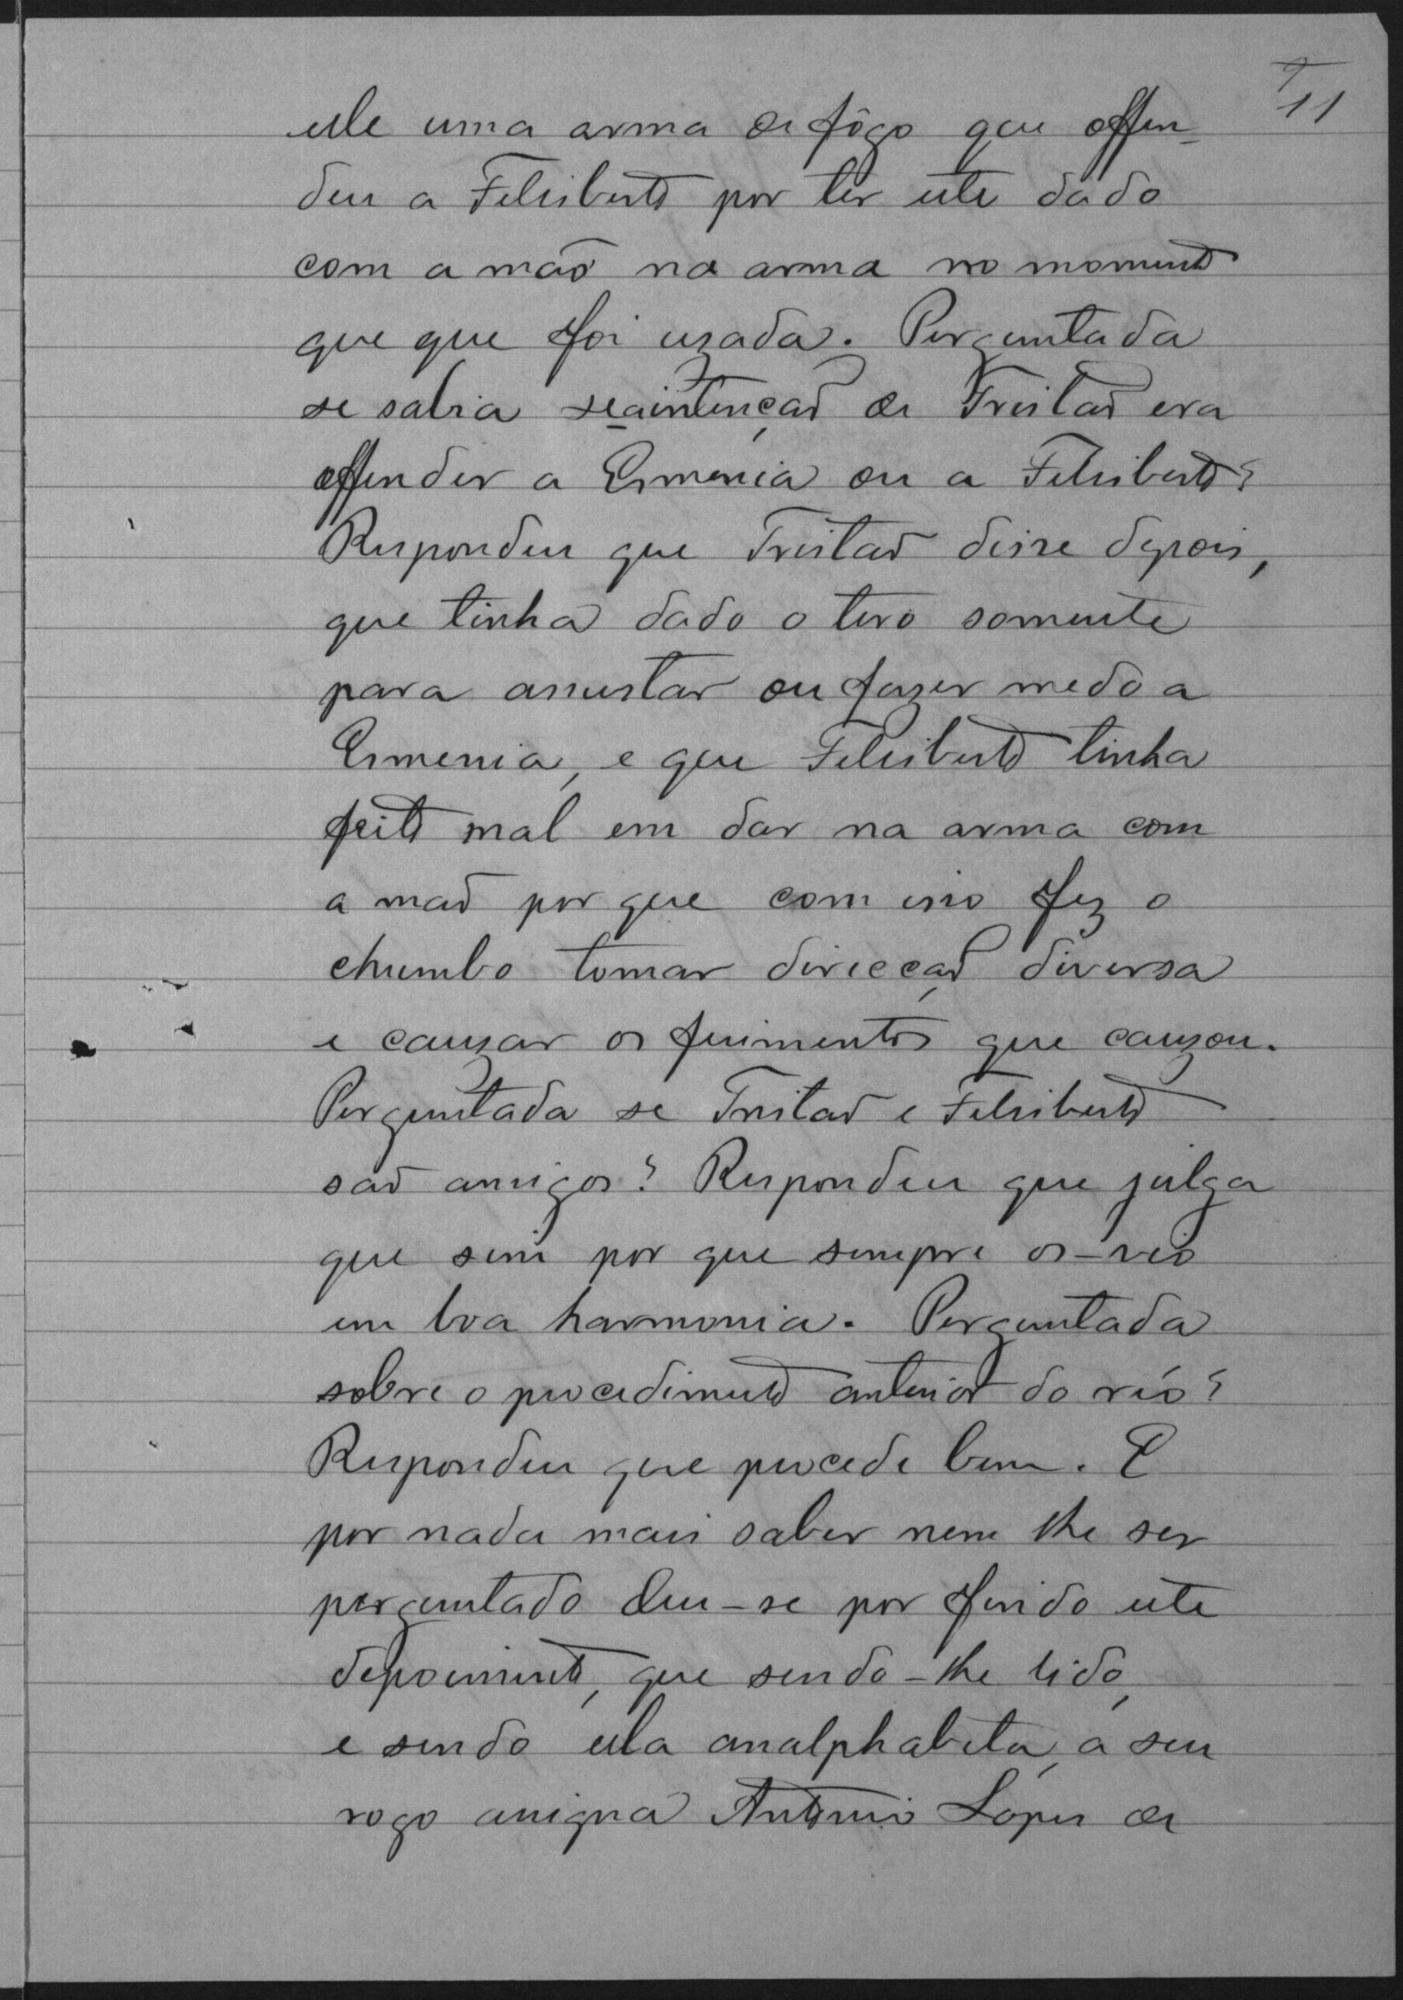 11
elle uma arma de fôgo que offen-
deu a Felisberto por ter este dado
com a mão na arma no momento
que que foi uzada. Perguntada
se sabia se a intenção de Tristão era
offender a Ermenia ou a Felisberto?
Respondeu que Tristão disse depois,
que tinha dado o tiro somente
para assustar ou fazer medo a
Ermenia, e que Felisberto tinha
feito mal em dar na arma com
a mão por que com isso fez o
chumbo tomar direcção diversa
e cauzar os ferimentos que cauzou.
Perguntada se Tristão e Felisberto
são amigos? Respondeu que julga
que sim por que sempre os-vio
em boa harmonia. Perguntada
sobre o procedimento anterior do réo?
Respondeu que procede bem. E
por nada mais saber nem lhe ser
perguntado deu-se por findo este
depoimento, que sendo-lhe lido,
e sendo ella analphabeta, a seu
rogo assigna Antonio Lopes de